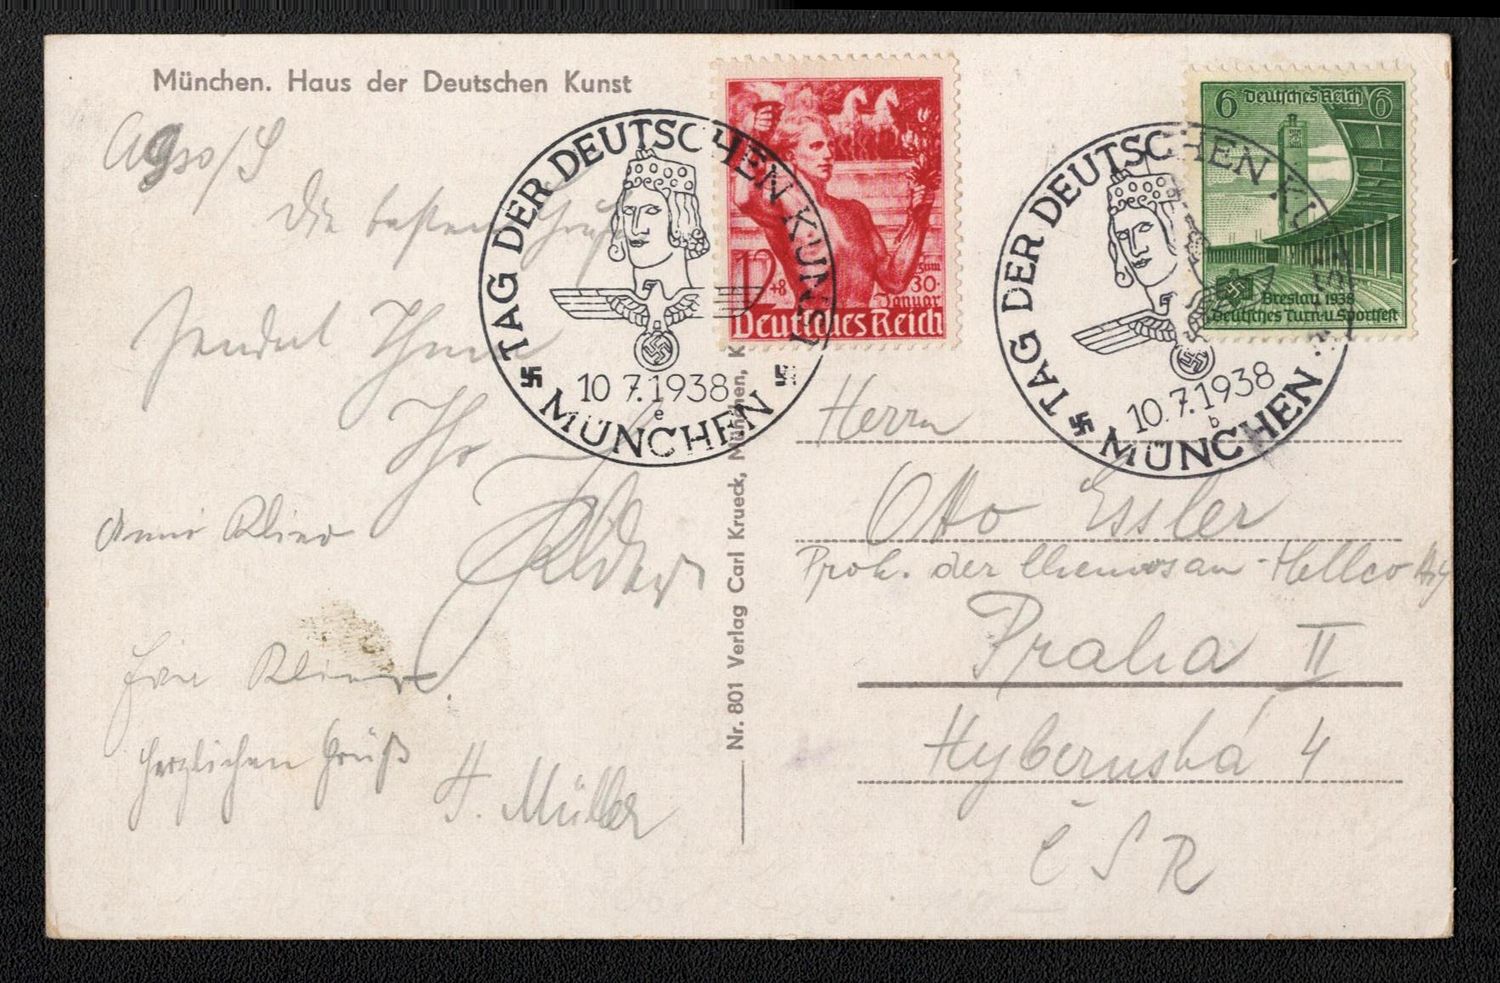 München. Haus der Deutschen Kunst
Die besten Grüße
sendet Ihnen
Ihr
Herzlichen Gruß
H. Müller
TAG DER DEUTSCHEN KUNST
10.7.1938
e
MÜNCHEN
12+8
zum
30.
Januar
Deutsches Reich
TAG DER DEUTSCHEN KUNST
10.7.1938
b
MÜNCHEN
6 Deutsches Reich 6
Breslau 1938
Deutsches Turn-u. Sportfest
Nr. 801 Verlag Carl Krueck, München, K
Herrn
Otto Essler
Prok. der Chemosan-Hellco
Praha II
Hybernská 4
ČSR